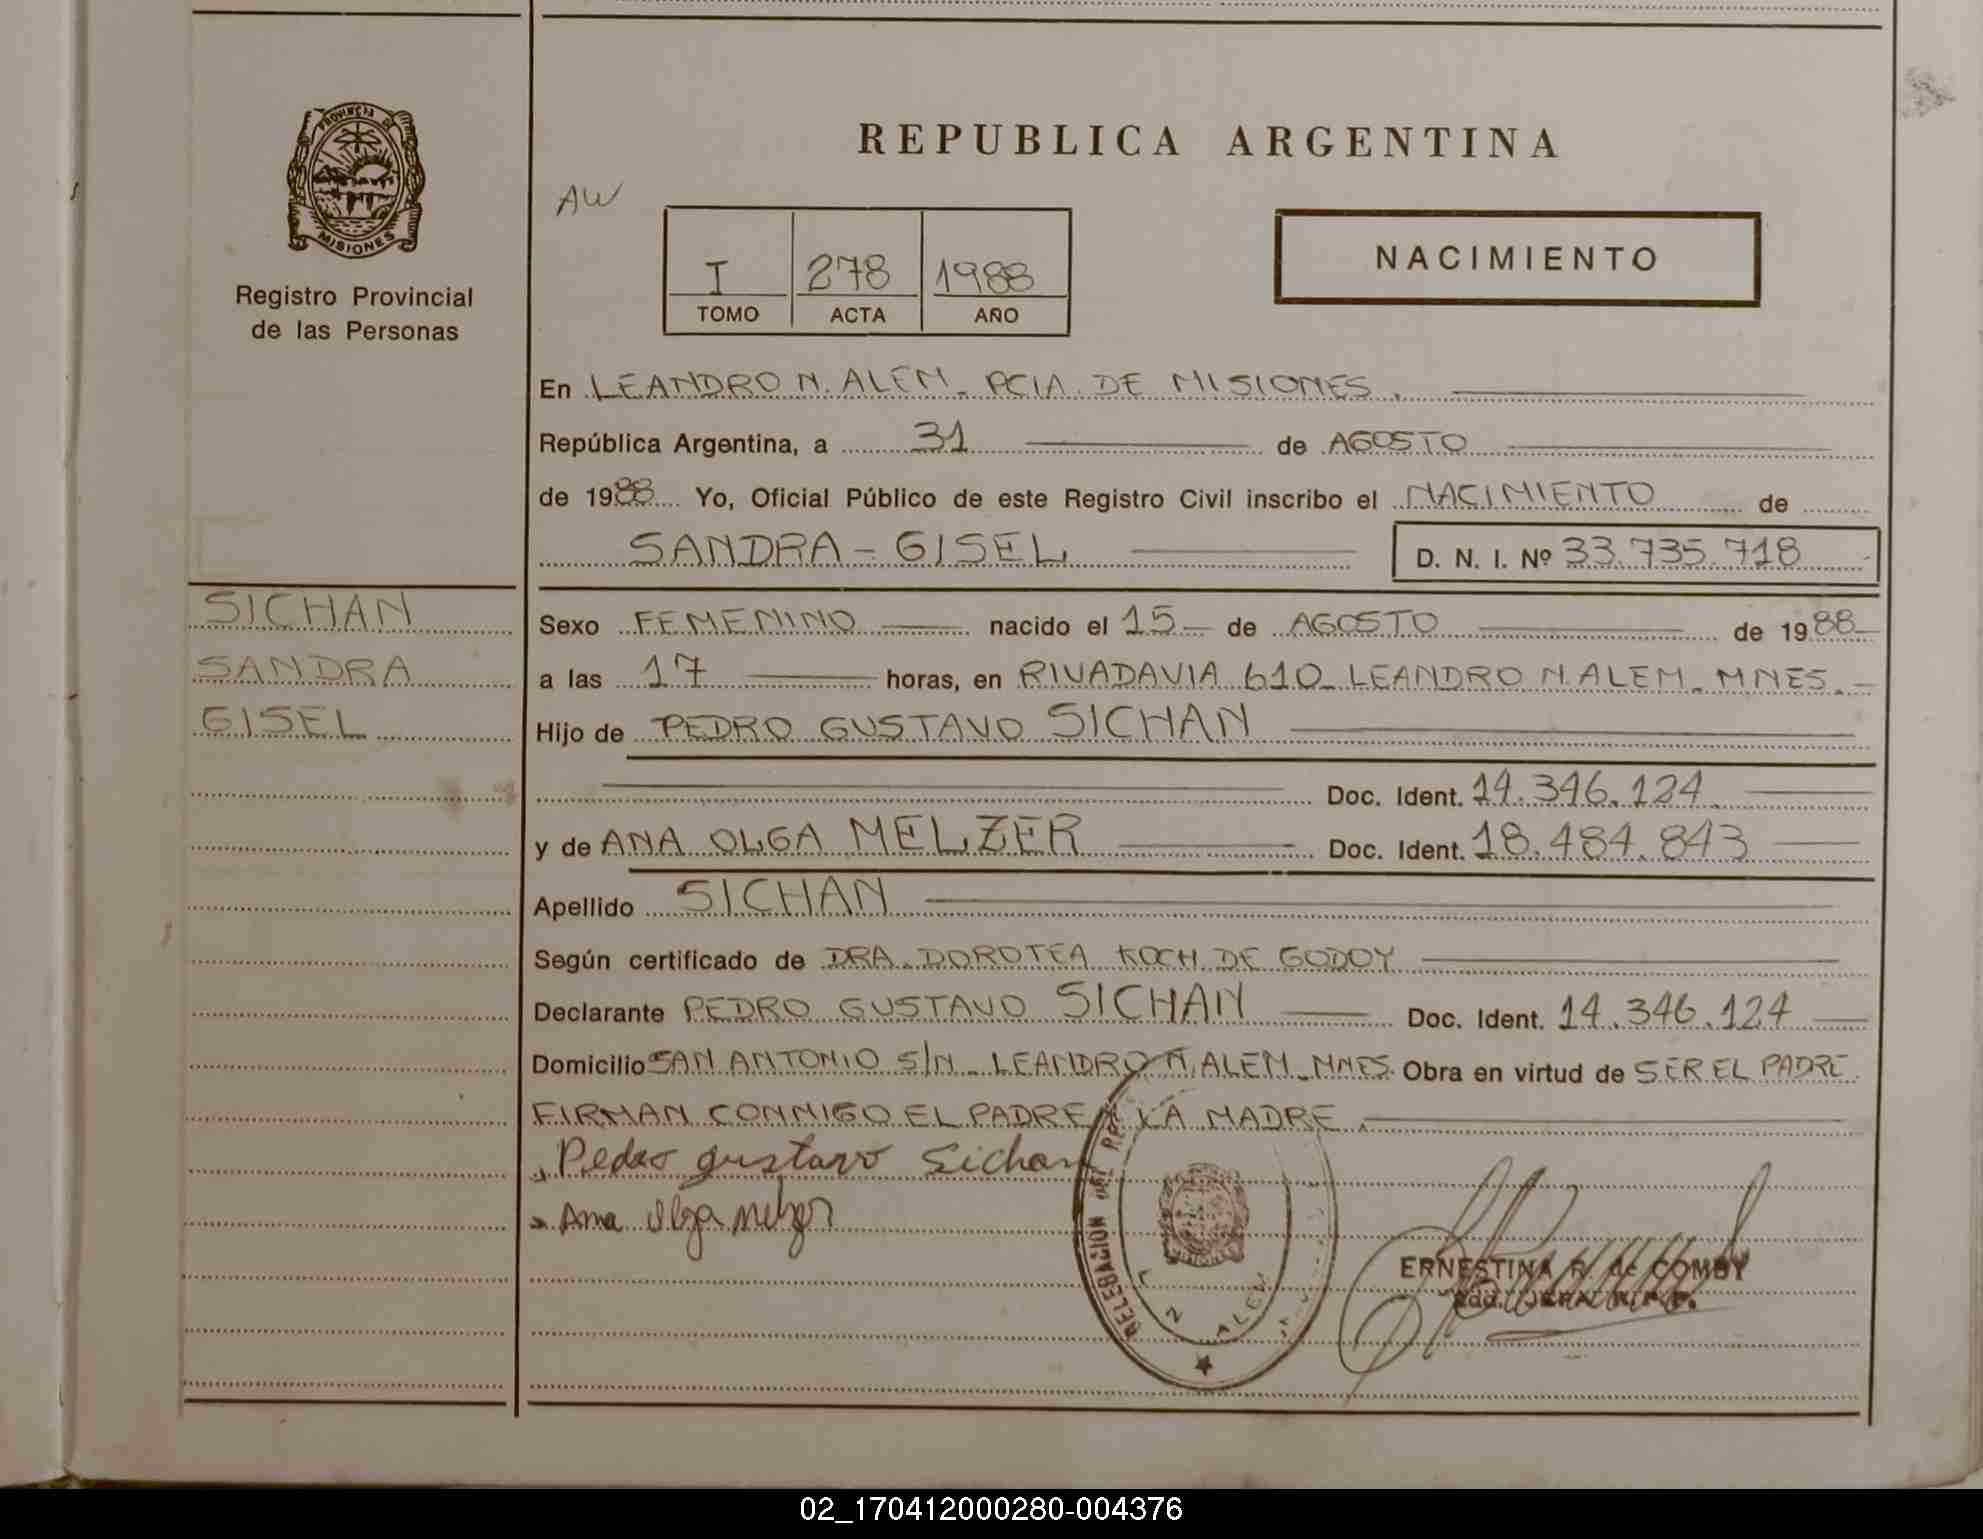 PROVINCIA DE
MISIONES
Registro Provincial
de las Personas
REPUBLICA ARGENTINA
AW
I 278 1988
TOMO ACTA AÑO
NACIMIENTO
En LEANDRO N. ALEM - PCIA. DE MISIONES.
República Argentina, a 31 de AGOSTO
de 1988 Yo, Oficial Público de este Registro Civil inscribo el NACIMIENTO de
SANDRA - GISEL D. N. I. Nº 33.735.718
SICHAN
SANDRA
GISEL
Sexo FEMENINO nacido el 15 de AGOSTO de 1988
a las 17 horas, en RIVADAVIA 610 - LEANDRO N. ALEM - MNES.-
Hijo de PEDRO GUSTAVO SICHAN
Doc. Ident. 14.346.124
y de ANA OLGA MELZER Doc. Ident. 18.484.843
Apellido SICHAN
Según certificado de DRA. DOROTEA KOCH DE GODOY
Declarante PEDRO GUSTAVO SICHAN Doc. Ident. 14.346.124
Domicilio SAN ANTONIO S/N - LEANDRO N. ALEM - MNES. Obra en virtud de SER EL PADRE
FIRMAN CONMIGO EL PADRE Y LA MADRE.
Pedro gustavo Sichan
Ana Olga Melzer
DELEGACION DEL
MISIONES
ALEM
ERNESTINA R. de COMBY
02_170412000280-004376